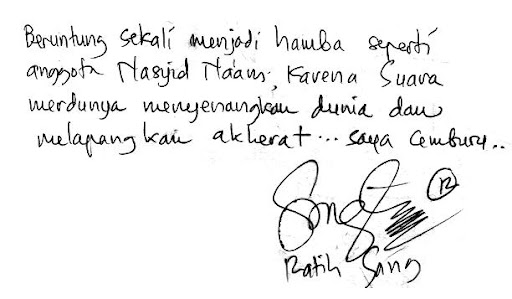 Beruntung sekali menjadi hamba seperti
anggota Nasyid Na'am, karena Suara
merdunya menyenangkan dunia dan
melapangkan akherat... saya cemburu..
Ratih Sang